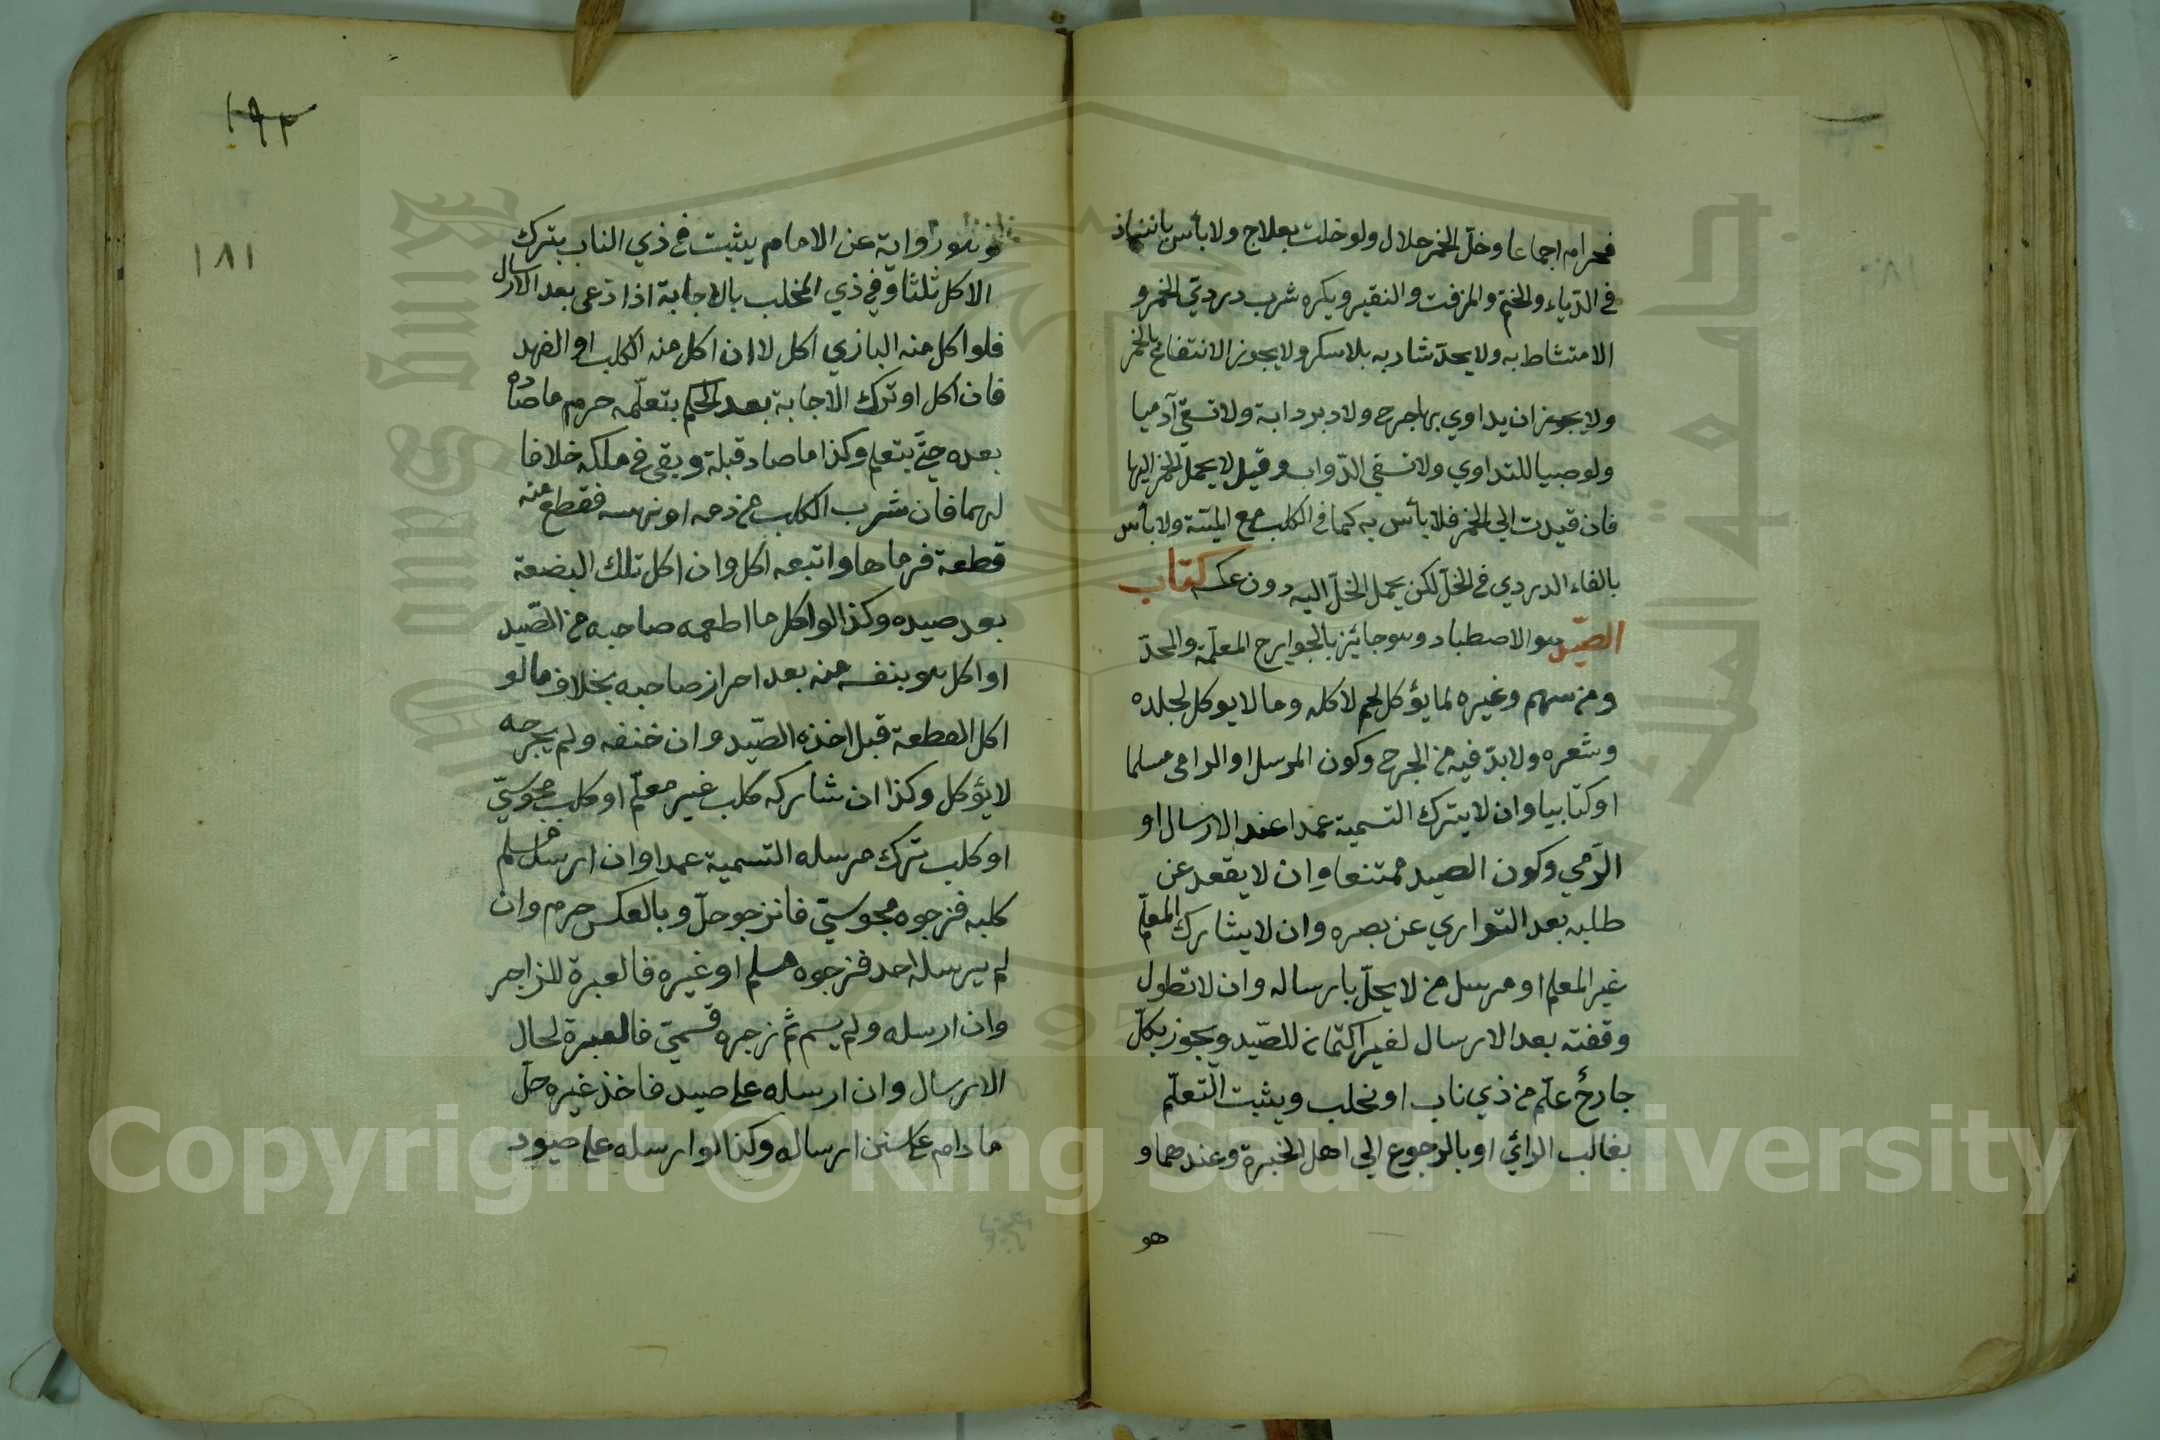 فحرام اجماعا وخلّ الخمر حلال ولو خللت بعلاج ولا بأس بانتباذ
في الدّباء والحنتم والمزفت والنقير ويكره شرب درديّ الخمر و
الامتشاط به ولا يحدّ شاربه بلا سكر ولا يجوز الانتفاع بالخمر
ولا يجوز ان يداوي بها جرح ولا دبر دابة ولا تسقي آدميا
ولو صبيا للتداوي ولا تسقي الدّواب وقيل لا يحمل الخمر اليها
فان قيدت الي الخمر فلا بأس به كما في الكلب مع الميتة ولا بأس
بالقاء الدردي في الخلّ لكن يحمل الخلّ اليه دون عكسه كتاب
الصّيد هو الاصطياد وهو جائز بالجوارح المعلّمة والمحدّ
د من سهم وغيره لما يؤكل لحمه لاكله وما لا يوكل لجلده
وشعره ولا بدّ فيه من الجرح وكون المرسل او الرامي مسلما
او كتابيا وان لا يترك التسمية عمدا عند الارسال او
الرّمي وكون الصيد ممتنعا وان لا يقعد عن
طلبه بعد التواري عن بصره وان لا يشارك المعلّم
غير المعلم او مرسل من لا يحلّ بارساله وان لا تطول
وقفته بعد الارسال لغير اكتمانه للصّيد ويجوز بكلّ
جارح علّم من ذي ناب او مخلب ويثبت التّعلّم
بغالب الرائي او بالرجوع الي اهل الخبرة وعندهما و
هو
١٩٢
١٨١
وهو رواية عن الامام يثبت في ذي الناب بترك
الاكل ثلثا وفي ذي المخلب بالاجابة اذا دعى بعد الارسال
فلو اكل منه البازي اكل لا ان اكل منه الكلب او الفهد
فان اكل او ترك الاجابة بعد الحكم بتعلّمه حرم ما صاده
بعده حتّى يتعلم وكذا ما صاد قبله وبقي في ملكه خلافا
لهما فان شرب الكلب من دمه او نهسه فقطع منه
قطعة فرماها واتبعه اكل وان اكل تلك البضعة
بعد صيده وكذا لو اكل ما اطعمه صاحبه من الصّيد
او اكل هو بنفسه منه بعد احراز صاحبه بخلاف ما لو
اكل القطعة قبل اخذه الصّيد وان خنقه ولم يجرحه
لا يؤكل وكذا ان شاركه كلب غير معلّم او كلب مجوسيّ
او كلب ترك مرسله التسمية عمدا وان ارسل مسلم
كلبه فزجره مجوسيّ فانزجر حلّ وبالعكس حرم وان
لم يرسله احد فزجره مسلم او غيره فالعبرة للزاجر
وان ارسله ولم يسم ثم زجره فسمّي فالعبرة لحال
الارسال وان ارسله على صيد فاخذ غيره حلّ
ما دام على سنن ارساله وكذا لو ارسله على صيود
Copyright © King Saud University
King Saud University
جامعة الملك سعود